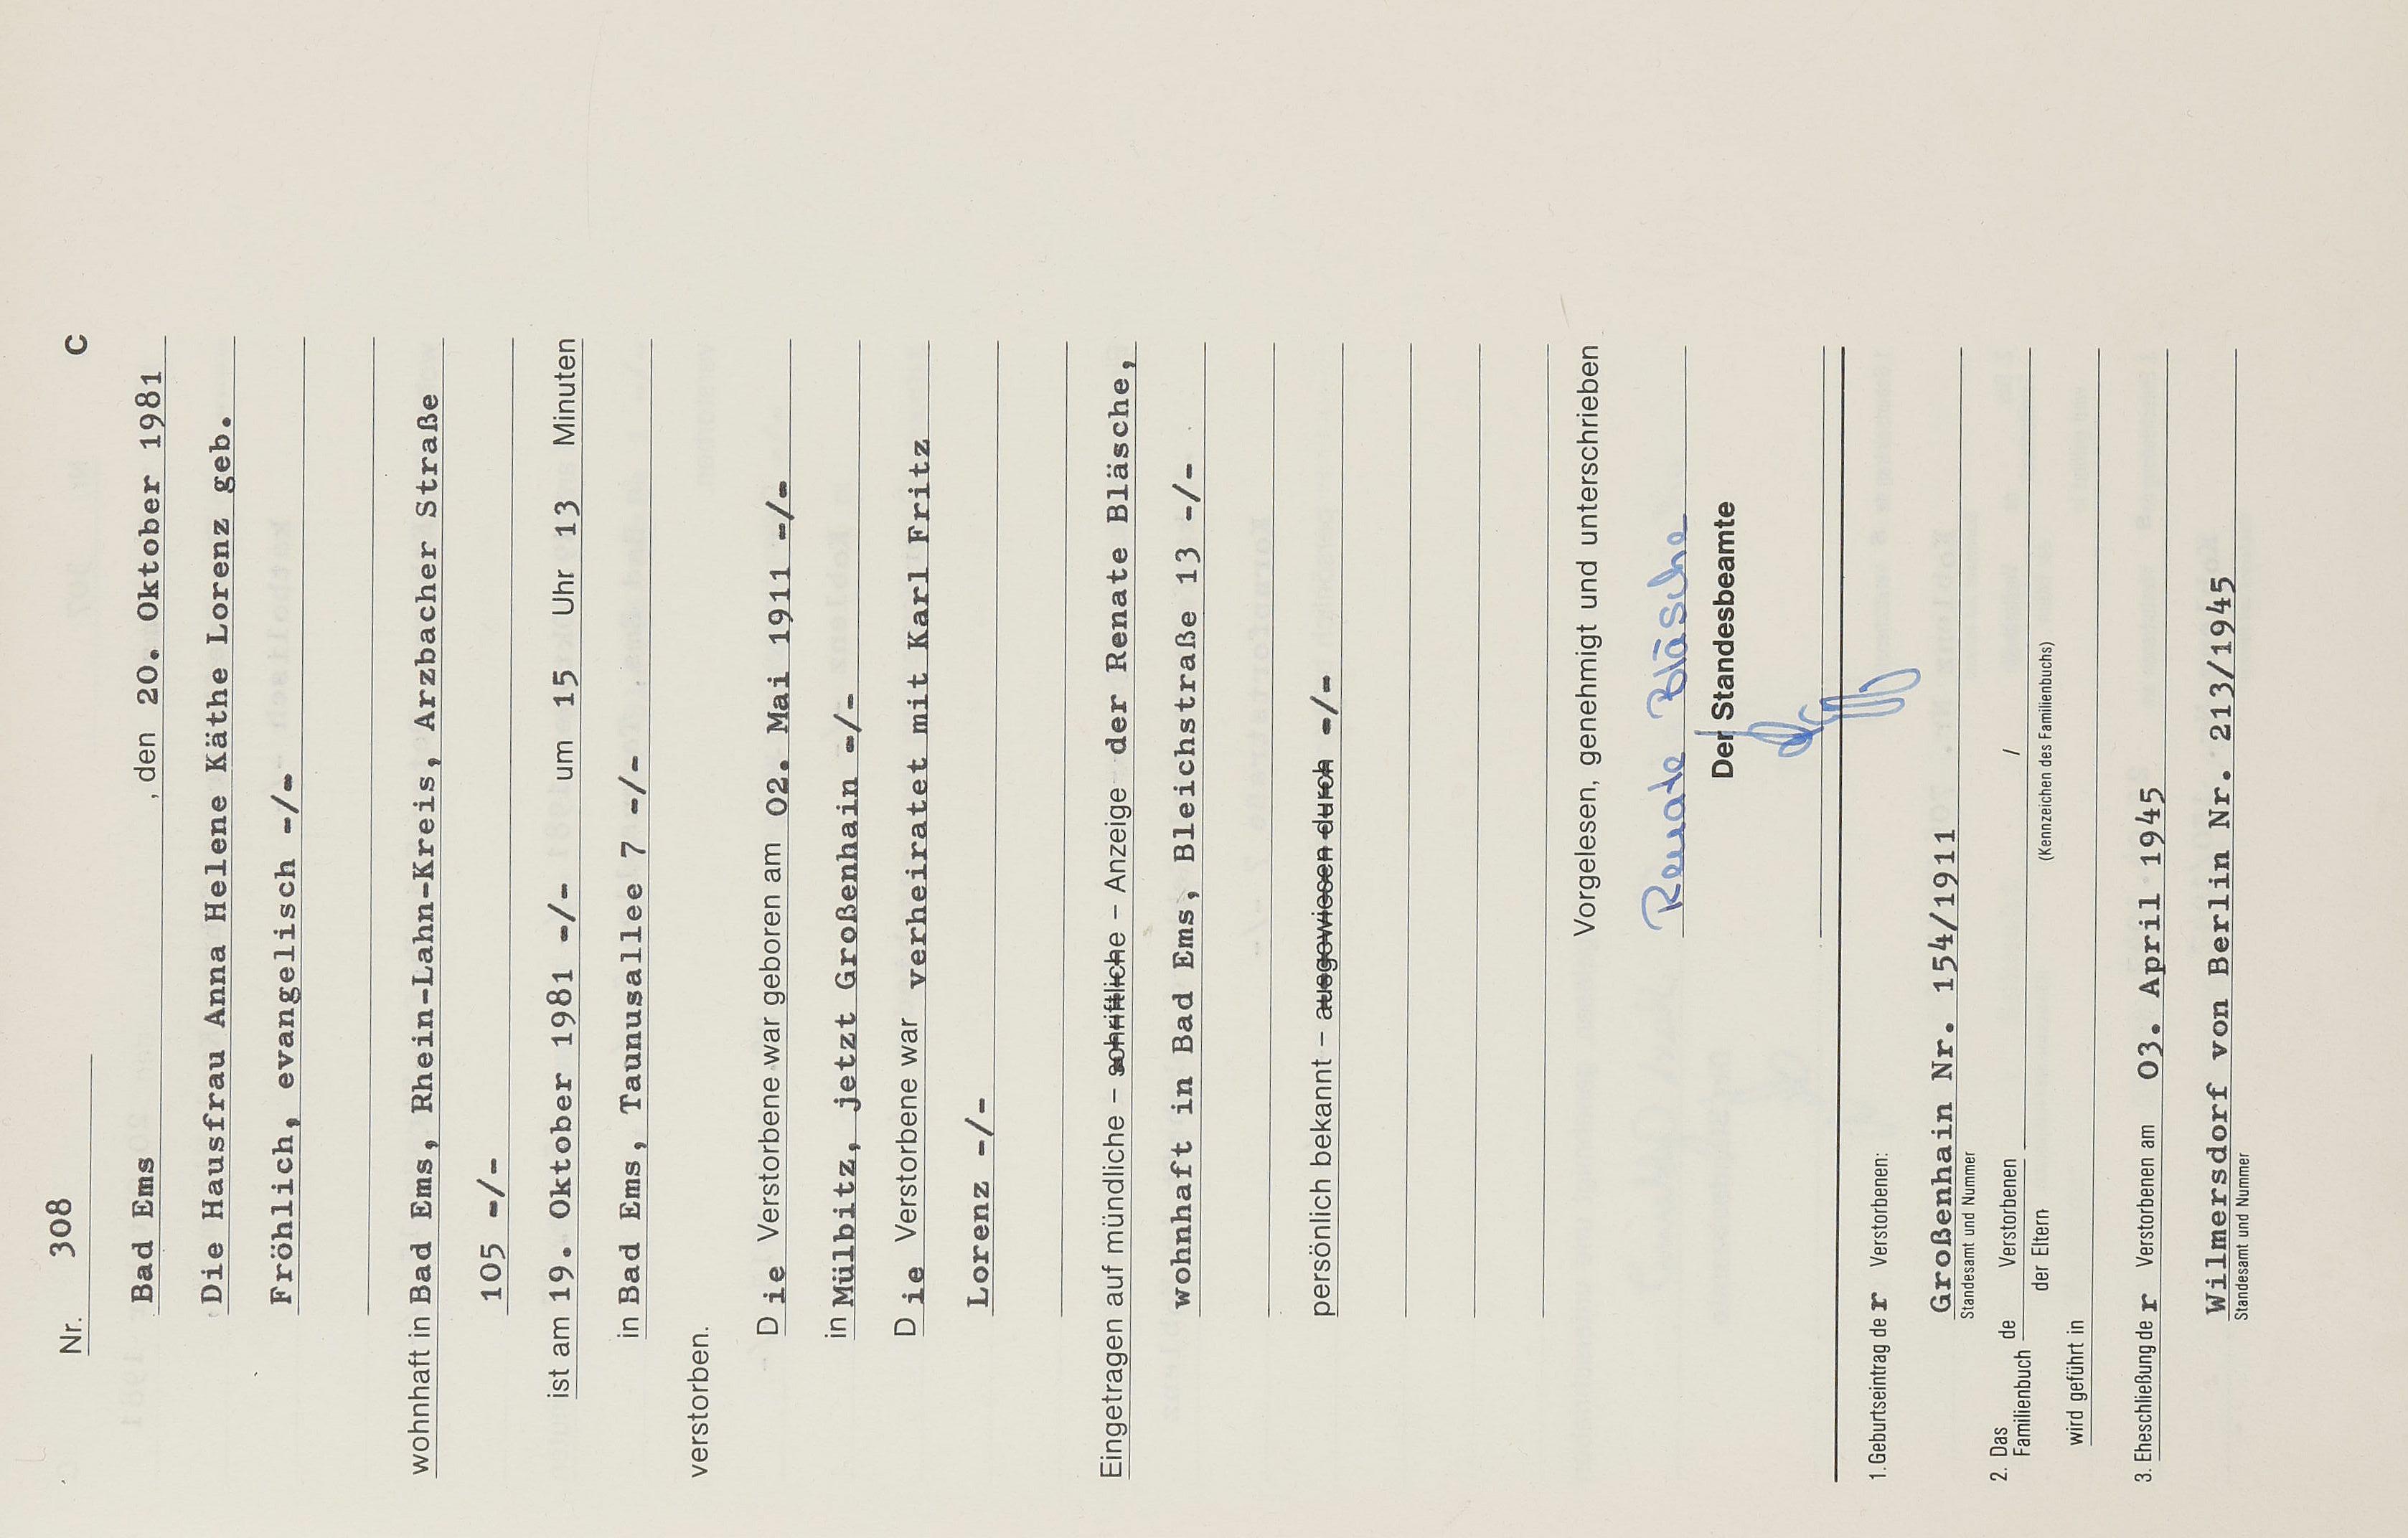 Nr. 308 C
Bad Ems , den 20. Oktober 1981
Die Hausfrau Anna Helene Käthe Lorenz geb.
Fröhlich, evangelisch -/-
wohnhaft in Bad Ems, Rhein-Lahn-Kreis, Arzbacher Straße
105 -/-
ist am 19. Oktober 1981 -/- um 15 Uhr 13 Minuten
in Bad Ems, Taunusallee 7 -/-
verstorben.
Die Verstorbene war geboren am 02. Mai 1911 -/-
in Mülbitz, jetzt Großenhain -/-
Die Verstorbene war verheiratet mit Karl Fritz
Lorenz -/-
Eingetragen auf mündliche – schriftliche – Anzeige der Renate Bläsche,
wohnhaft in Bad Ems, Bleichstraße 13 -/-
persönlich bekannt – ausgewiesen durch -/-
Vorgelesen, genehmigt und unterschrieben
Renate Bläsche
Der Standesbeamte
1. Geburtseintrag der Verstorbenen:
Großenhain Nr. 154/1911
Standesamt und Nummer
2. Das Familienbuch de Verstorbenen /
der Eltern (Kennzeichen des Familienbuchs)
wird geführt in
3. Eheschließung der Verstorbenen am 03. April 1945
Wilmersdorf von Berlin Nr. 213/1945
Standesamt und Nummer